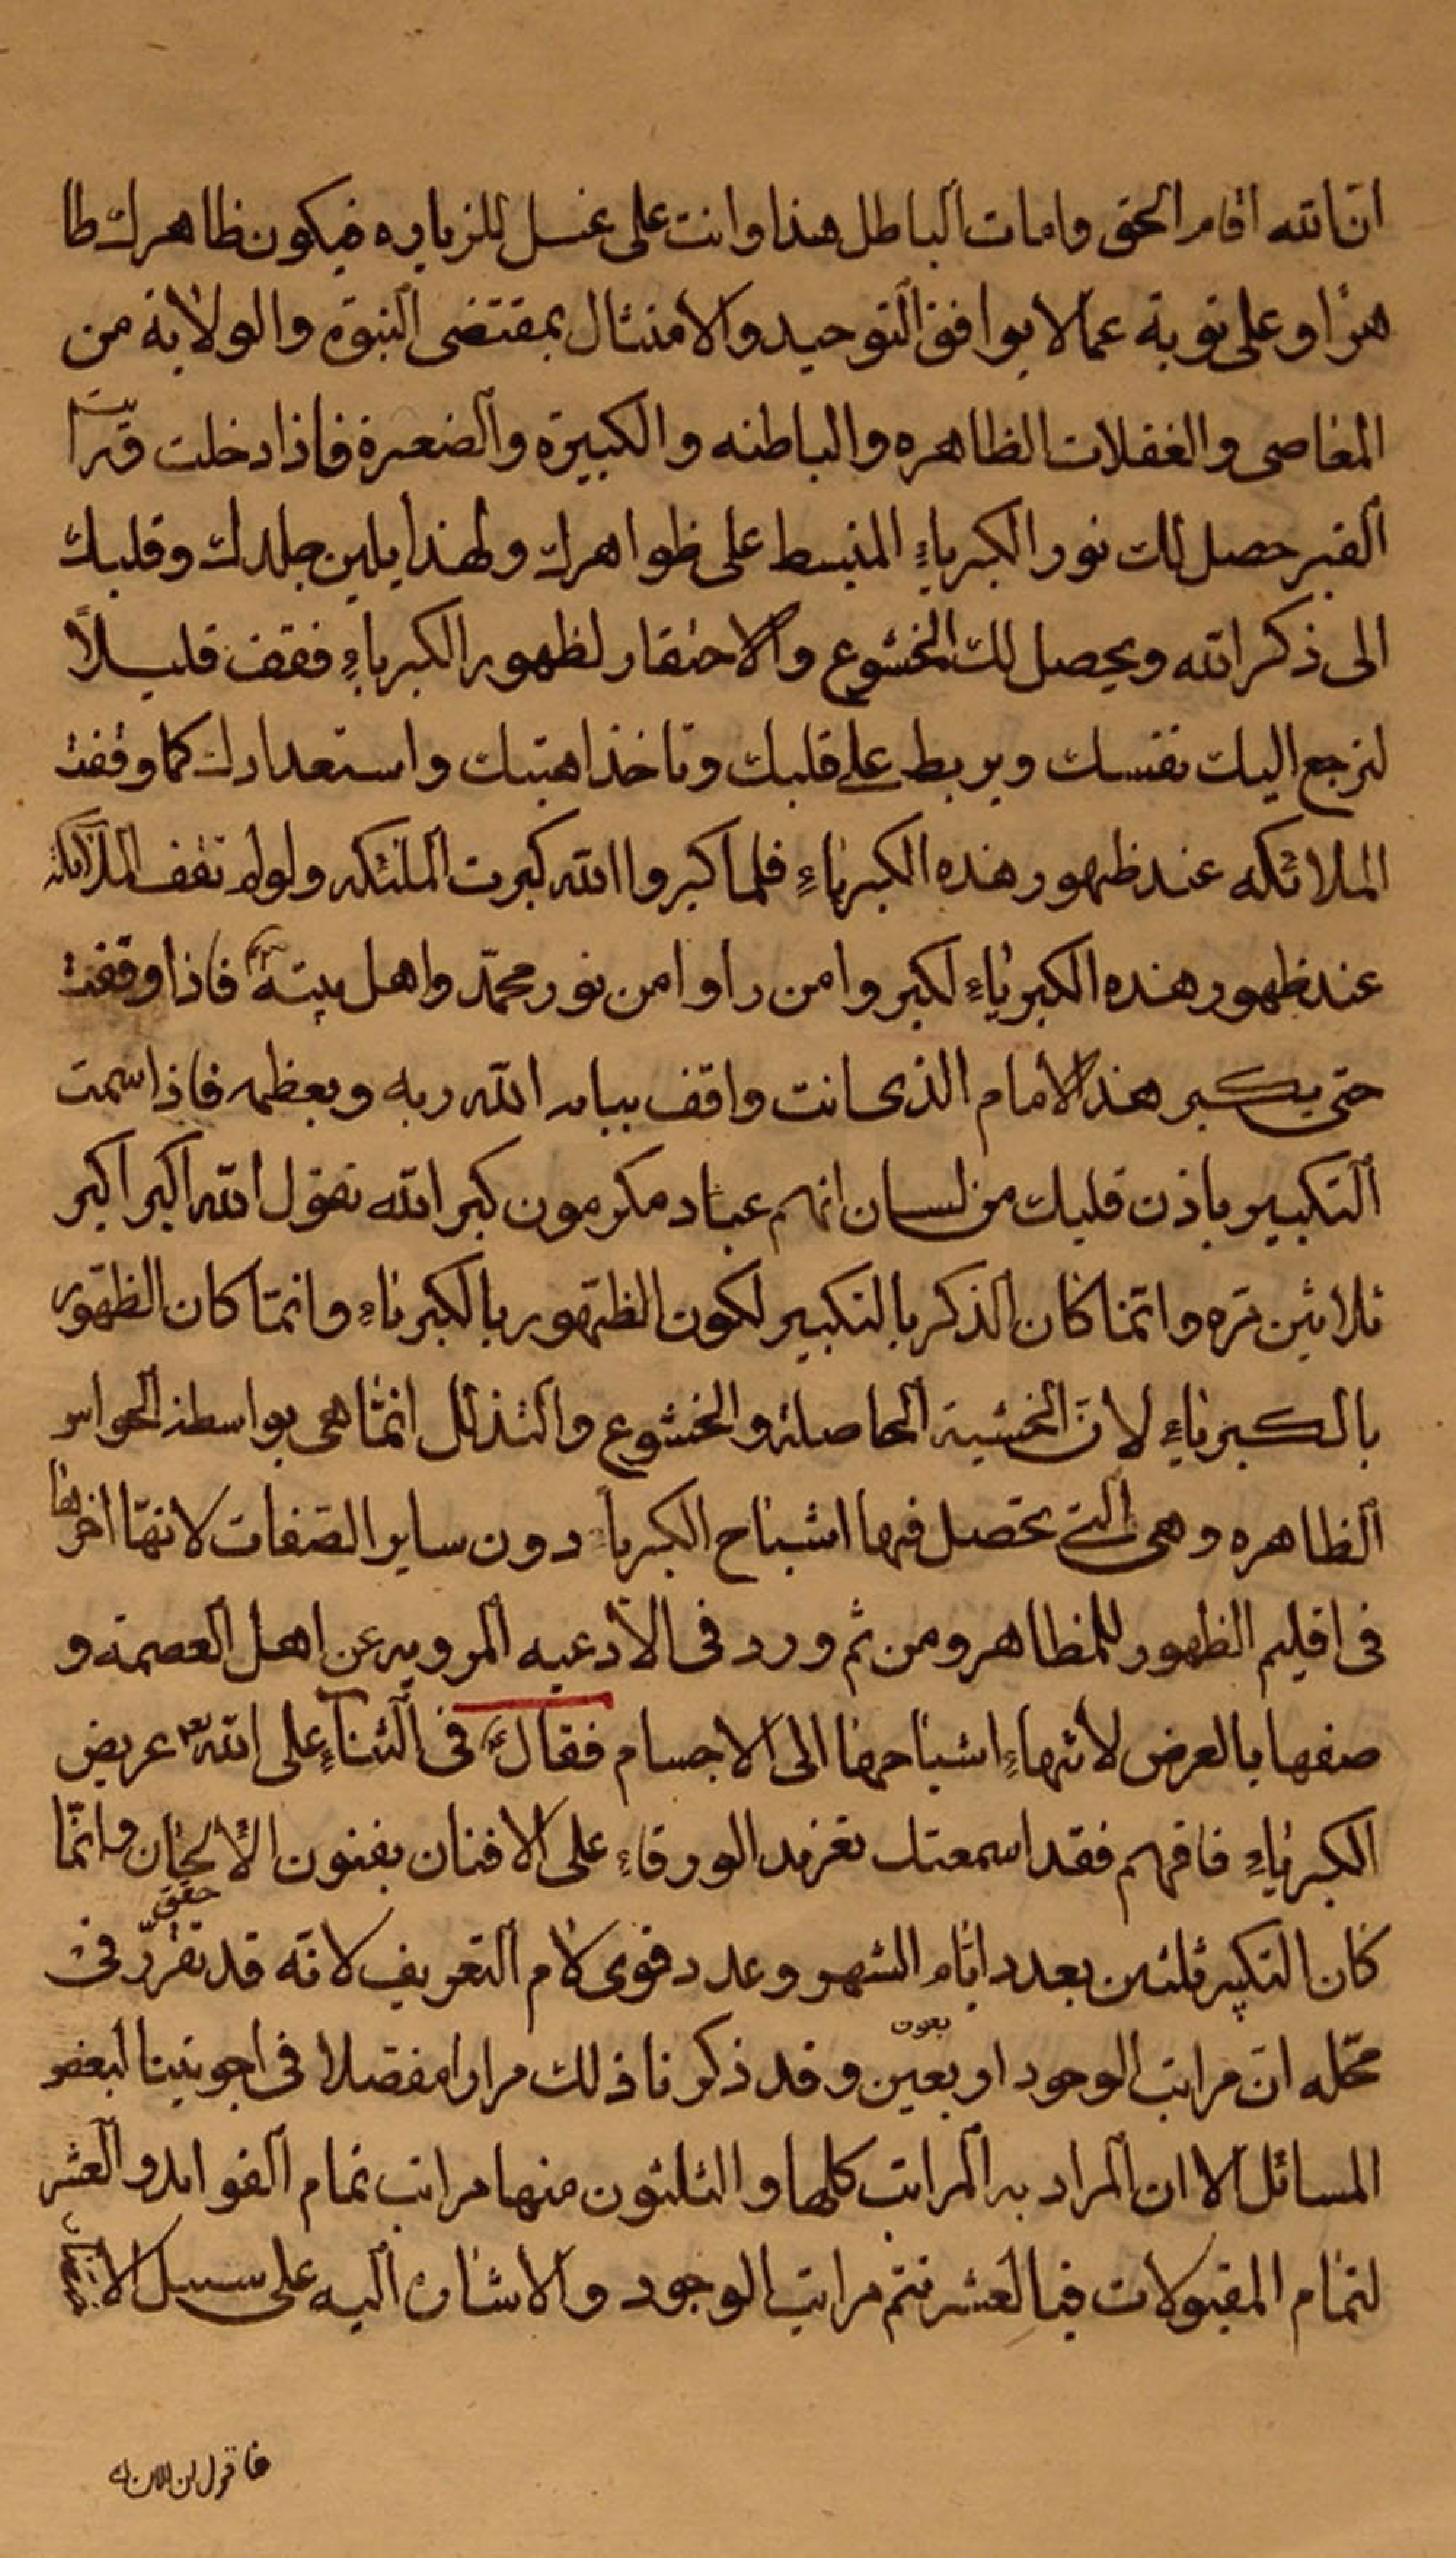 ان الله اقام الحق وامات الباطل هذا وانت على غسل للزياره فيكون ظاهرك طا
هرا وعلى توبة عما لا يوافق التوحيد والامتثال بمقتضى النبوة والولاية من
المعاصى والغفلات الظاهره والباطنه والكبيرة والصغيرة فاذا دخلت ورايت
القبر حصل لك نور الكبرياء المنبسط على ظواهرك ولهذا يلين جلدك وقلبك
الى ذكر الله ويحصل لك الخشوع والاحتقار لظهور الكبرياء فقف قليلاً
لترجع اليك نفسك ويربط على قلبك وتاخذ اهبتك واستعدادك كما وقفت
الملائكه عند ظهور هذه الكبرياء فلما كبروا الله كبرت الملئكه ولو لم تقف الملائكه
عند ظهور هذه الكبرياء لكبروا من راوا من نور محمّد واهل بيته فاذا وقفت
حتى يكبر هذا الامام الذى انت واقف ببابه الله ربه ويعظمه فاذا سمعت
التكبير باذن قلبك من لسان انهم عباد مكرمون كبر الله تقول الله اكبر اكبر
ثلاثين مره وانما كان الذكر بالتكبير لكون الظهور بالكبرياء وانما كان الظهور
بالكبرياء لانّ الخشية الحاصلة والخشوع والتذلل انما هى بواسطة الحواس
الظاهره وهى التى تحصل فيها اشباح الكبرياء دون ساير الصفات لانها اخرها
فى اقليم الظهور للمظاهر ومن ثم ورد فى الادعيه المرويه عن اهل العصمة و
صفها بالعرض لانتهاء اشباحها الى الاجسام فقال فى الثناء على الله عريض
الكبرياء فافهم فقد اسمعتك تغريد الورقاء على الافنان بفنون الالحان وانّما
كان التكبير ثلثين بعدد ايام الشهر وعدد قوى لام التعريف لانه قد تقرّر حقق فى
محله ان مراتب الوجود اربعين بعون وقد ذكرنا ذلك مرارا مفصلا فى اجوبتنا لبعض
المسائل الا ان المراد به المراتب كلها والثلثون منها مراتب تمام القوابل والعشر
لتمام المقبولات فبالعشر تتم مراتب الوجود والاشارة اليه على سبيل
فاقول ان